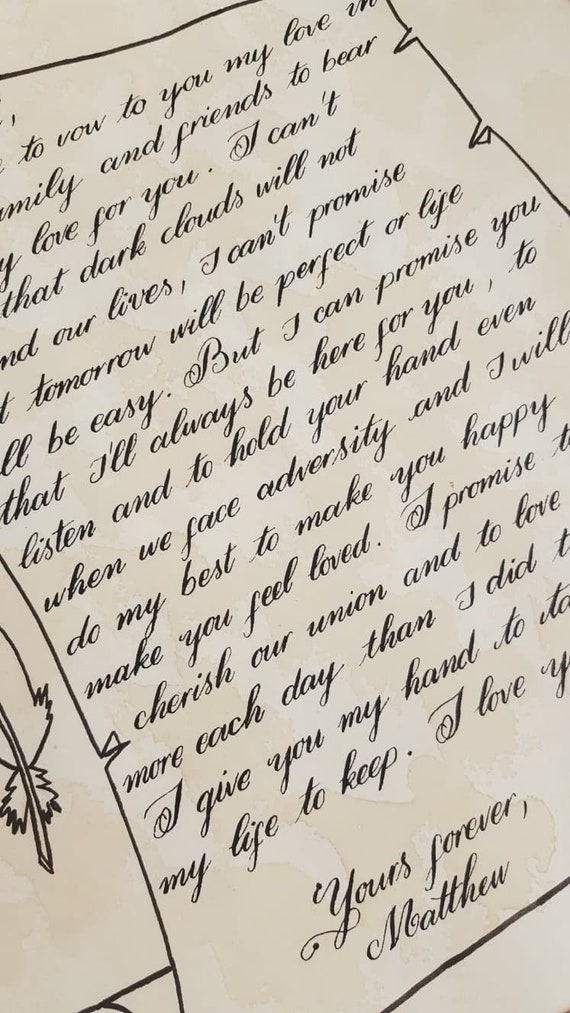 to vow to you my love in
family and friends to bear
love for you. I can't
that dark clouds will not
our lives, I can't promise
tomorrow will be perfect or life
be easy. But I can promise you
that I'll always be here for you, to
listen and to hold your hand even
when we face adversity and I will
do my best to make you happy
make you feel loved. I promise
cherish our union and to love
more each day than I did
I give you my hand to
my life to keep. I love
Yours forever,
Matthew